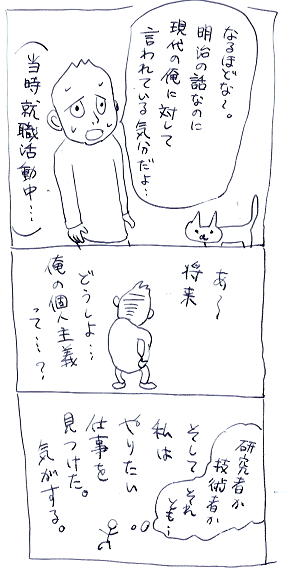 なるほどな～。
明治の話なのに
現代の俺に対して
言われている気分だよ…
(当時就職活動中…)
あ～
将来
どうしよ…
俺の個人主義
って…?
研究者か
技術者か
それ
とも…
そして
私は
やりたい
仕事を
見つけた。
気がする。